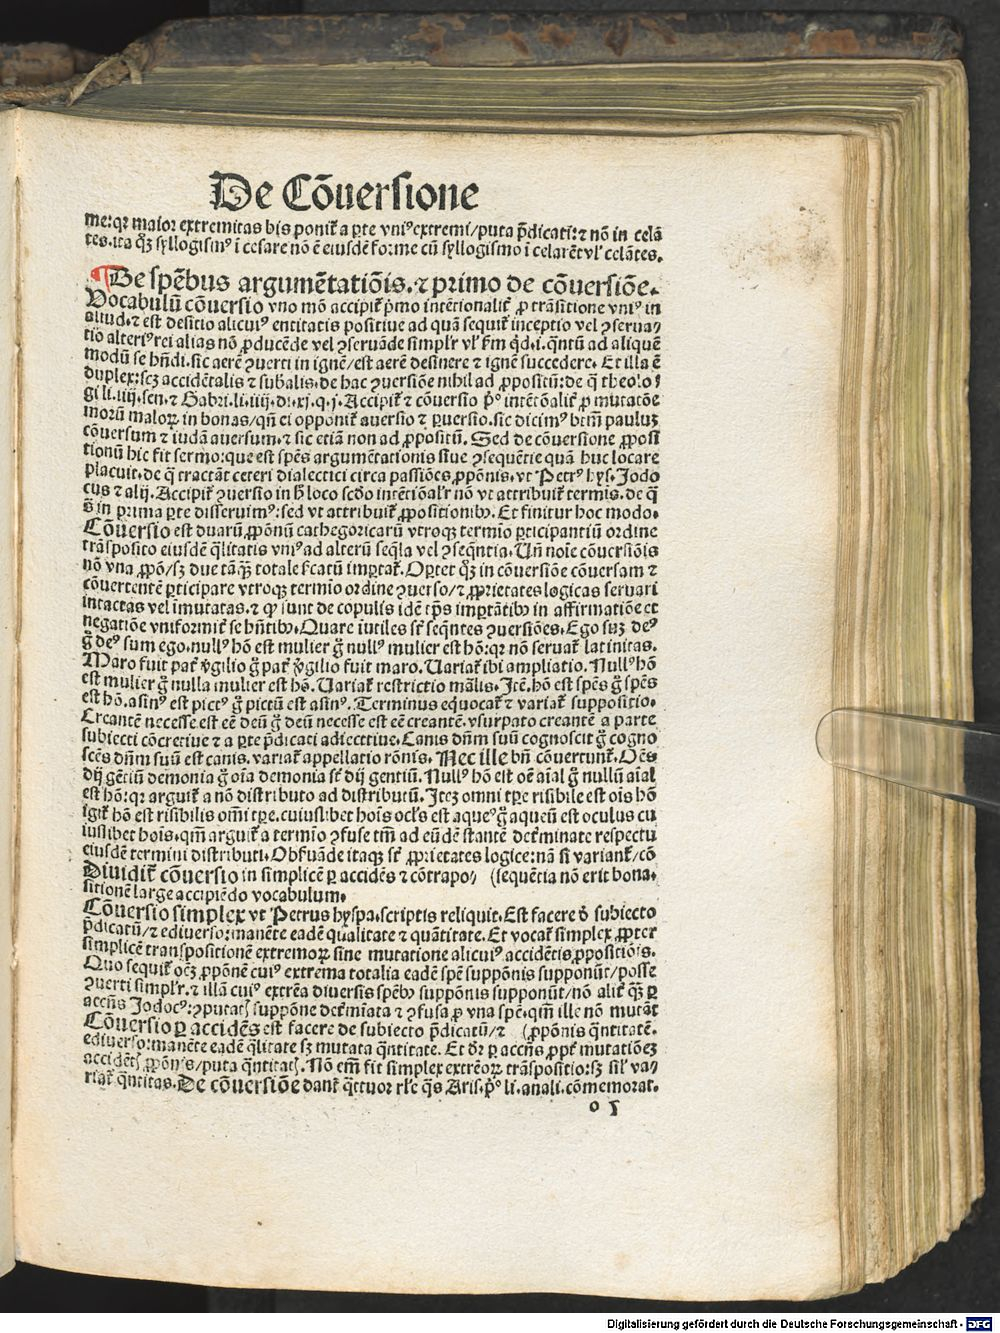 De Cōuersione
me:qꝛ maioꝛ extremitas bis ponit̄ a ꝑte vni⁹ extremi/puta p̄dicati:⁊ nō in celā
tes.ita qꝫ syllogism⁹ ī cesare nō ē eiusdē foꝛme cū syllogismo ī celarēt vl̓ celātes.
¶ De spēbus argumētatiōis.⁊ primo de cōuersiōe.
Vocabulū cōuersio vno mō accipit̄ p̄mo intētionalit̄ ꝓ trāsitione vni⁹ in
aliud.⁊ est desitio alicui⁹ entitatis positiue ad quā sequit̄ inceptio vel ꝯserua/
tio alteri⁹ rei alias nō ꝓducēde vel ꝯseruāde simpl̓r vl̓ ẜm qͥd.i.qͣntū ad aliquē
modū se hn̄di.sic aerē ꝯuerti in ignē/est aerē desinere ⁊ ignē succedere. Et illa ē
duplex:scꝫ accidētalis ⁊ sub̄alis.de hac ꝯuersiōe nihil ad ꝓpositū:de q̄ theolo/
gi li.iiij.sen.⁊ Gabri.li.iiij.di.xj.q.j. Accipit̄ ⁊ cōuersio p̄ᵒ intētōalit̄ ꝓ mutatōe
moꝛū maloꝝ in bonas/qn̄ ei opponit̄ auersio ⁊ ꝑuersio.sic dicim⁹ btm̄ pauluꝫ
cōuersum ⁊ iudā auersum.⁊ sic etiā non ad ꝓpositū. Sed de cōuersione ꝓposi
tionū hic fit sermo:que est spēs argumētationis siue ꝯsequētie quā huc locare
placuit.de q̄ tractāt ceteri dialectici circa passiōes ꝓpōnis.vt Petr⁹ hys. Jodo
cus ⁊ alij. Accipit̄ ꝯuersio in h̄ loco scd̓o intētiōal̓r nō vt attribuit̄ termis.de q̄
s̄ in prima ꝑte disseruim⁹:sed vt attribuit̄ ꝓpositionibꝰ. Et finitur hoc modo.
Cōuersio est duarū ꝓpōnū cathegoricarū vtroqꝫ termīo ꝑticipantiū oꝛdine
trāsposito eiusdē q̄litatis vni⁹ ad alterū seq̄la vel ꝯseq̄ntia. Un̄ noīe cōuersiōis
nō vna ꝓpō/sꝫ due tāqꝫ totale ſcatū impoꝛtāt̄. Opꝛtet qꝫ in cōuersiōe cōuersam ⁊
cōuertentē ꝑticipare vtroqꝫ termīo oꝛdine ꝯuerso/⁊ ꝓprietates logicas seruari
intactas vel īmutatas.⁊ qꝫ sunt de copulis idē tp̄s impoꝛtātibꝰ in affirmatiōe et
negatiōe vnifoꝛmit̄ se hn̄tibꝰ. Quare iutiles st̄ seq̄ntes ꝯuersiōes. Ego suꝫ de⁹
g̊ de⁹ sum ego.null⁹ hō est mulier g̊ null⁹ mulier est hō:qꝛ nō seruat̄ latinitas.
Maro fuit pat̄ v̓gilio g̊ pat̄ v̓gilio fuit maro. Variat̄ ibi ampliatio. Null⁹ hō
est mulier g̊ nulla mulier est hō. Variat̄ restrictio mālis. Itē.hō est spēs g̊ spēs
est hō.asin⁹ est pict⁹ g̊ pictū est asin⁹. Terminus equocat̄ ⁊ variat̄ suppositio.
Creantē necesse est eē deū g̊ deū necesse est eē creantē.vsurpato creantē a parte
subiecti cōcretiue ⁊ a ꝑte p̄dicati adiectiue. Canis dn̄m suū cognoscit g̊ cogno
scēs dn̄m suū est canis.variat̄ appellatio rōnis. Nec ille bn̄ cōuertunt̄. Oēs
dij gētiū demonia g̊ oīa demonia st̄ dij gentiū. Null⁹ hō ēst oē aīal g̊ nullū aīal
est hō:qꝛ arguit̄ a nō distributo ad distributū. Iteꝫ omni tꝑe risibile est oīs hō
igit̄ hō est risibilis omī tꝑe.cuiuslibet hoīs ocl̓s est aque⁹ g̊ aqueū est oculus cu
iuslibet hoīs.qm̄ arguit̄ a termīo ꝯfuse tm̄ ad eūdē stantē det̓minate respectu
eiusdē termini distributi. Obſuāde itaqꝫ st̄ ꝓprietates logice:nā si variant̄/cō
Diuidit̄ cōuersio in simplicē ꝑ accidēs ⁊ cōtrapo/ (sequētia nō erit bona.
sitionē large accipiēdo vocabulum.
Cōuersio simplex vt Petrus hyspa.scriptis reliquit. Est facere d̓ subiecto
p̄dicatū/⁊ ediuerso:manēte eadē qualitate ⁊ quātitate. Et vocat̄ simplex ꝓpter
simplicē transpositionē extremoꝝ sine mutatione alicui⁹ accidētis ꝓpositiōis.
Quo sequit̄ oēꝫ ꝓpōnē cui⁹ extrema totalia eadē spē suppōnis supponūt/posse
ꝯuerti simpl̓r.⁊ illā cui⁹ extrēa diuersis spēbꝰ suppōnis supponūt/nō alit̄ qꝫ ꝑ
accn̄s Jodoc⁹:ꝯputatꝭ suppōne det̓miata ⁊ ꝯfusa ꝓ vna spē.qm̄ ille nō mutāt
Cōuersio ꝑ accidēs est facere de subiecto p̄dicatū/⁊ (ꝓpōnis q̄ntitatē.
ediuerso:manēte eadē q̄litate sꝫ mutata q̄ntitate. Et dr̄ ꝑ accn̄s ꝓpt̄ mutatiōeꝫ
accidētꝭ ꝓpōnis/puta q̄ntitatꝭ. Nō em̄ fit simplex extrēoꝝ trāspositio:sꝫ sil̓ va/
riat̄ q̄ntitas. De cōuersiōe dant̄ q̄ttuoꝛ rl̓e q̄s Aris.p̄ᵒ li.anali.cōmemoꝛat.
o j
Digitalisierung gefördert durch die Deutsche Forschungsgemeinschaft - DFG